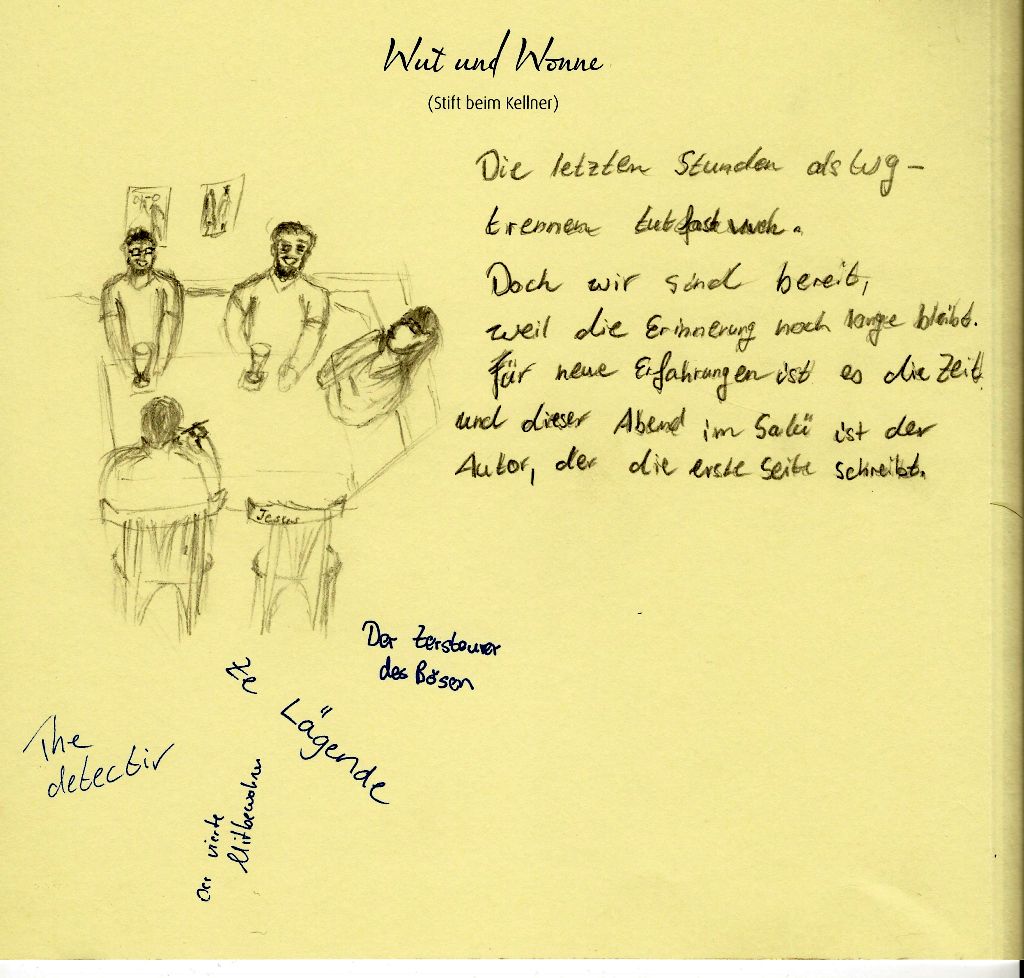 Wut und Wonne
(Stift beim Kellner)
Die letzten Stunden als Wg –
trennen tut fast weh.
Doch wir sind bereit,
weil die Erinnerung noch lange bleibt.
Für neue Erfahrungen ist es die Zeit
und dieser Abend im Salü ist der
Autor, der die erste Seite schreibt.
Jesus
Der Zerstourer
des Bösen
Ze
Lägende
The
detectir
Der vierte
Mitbewohner